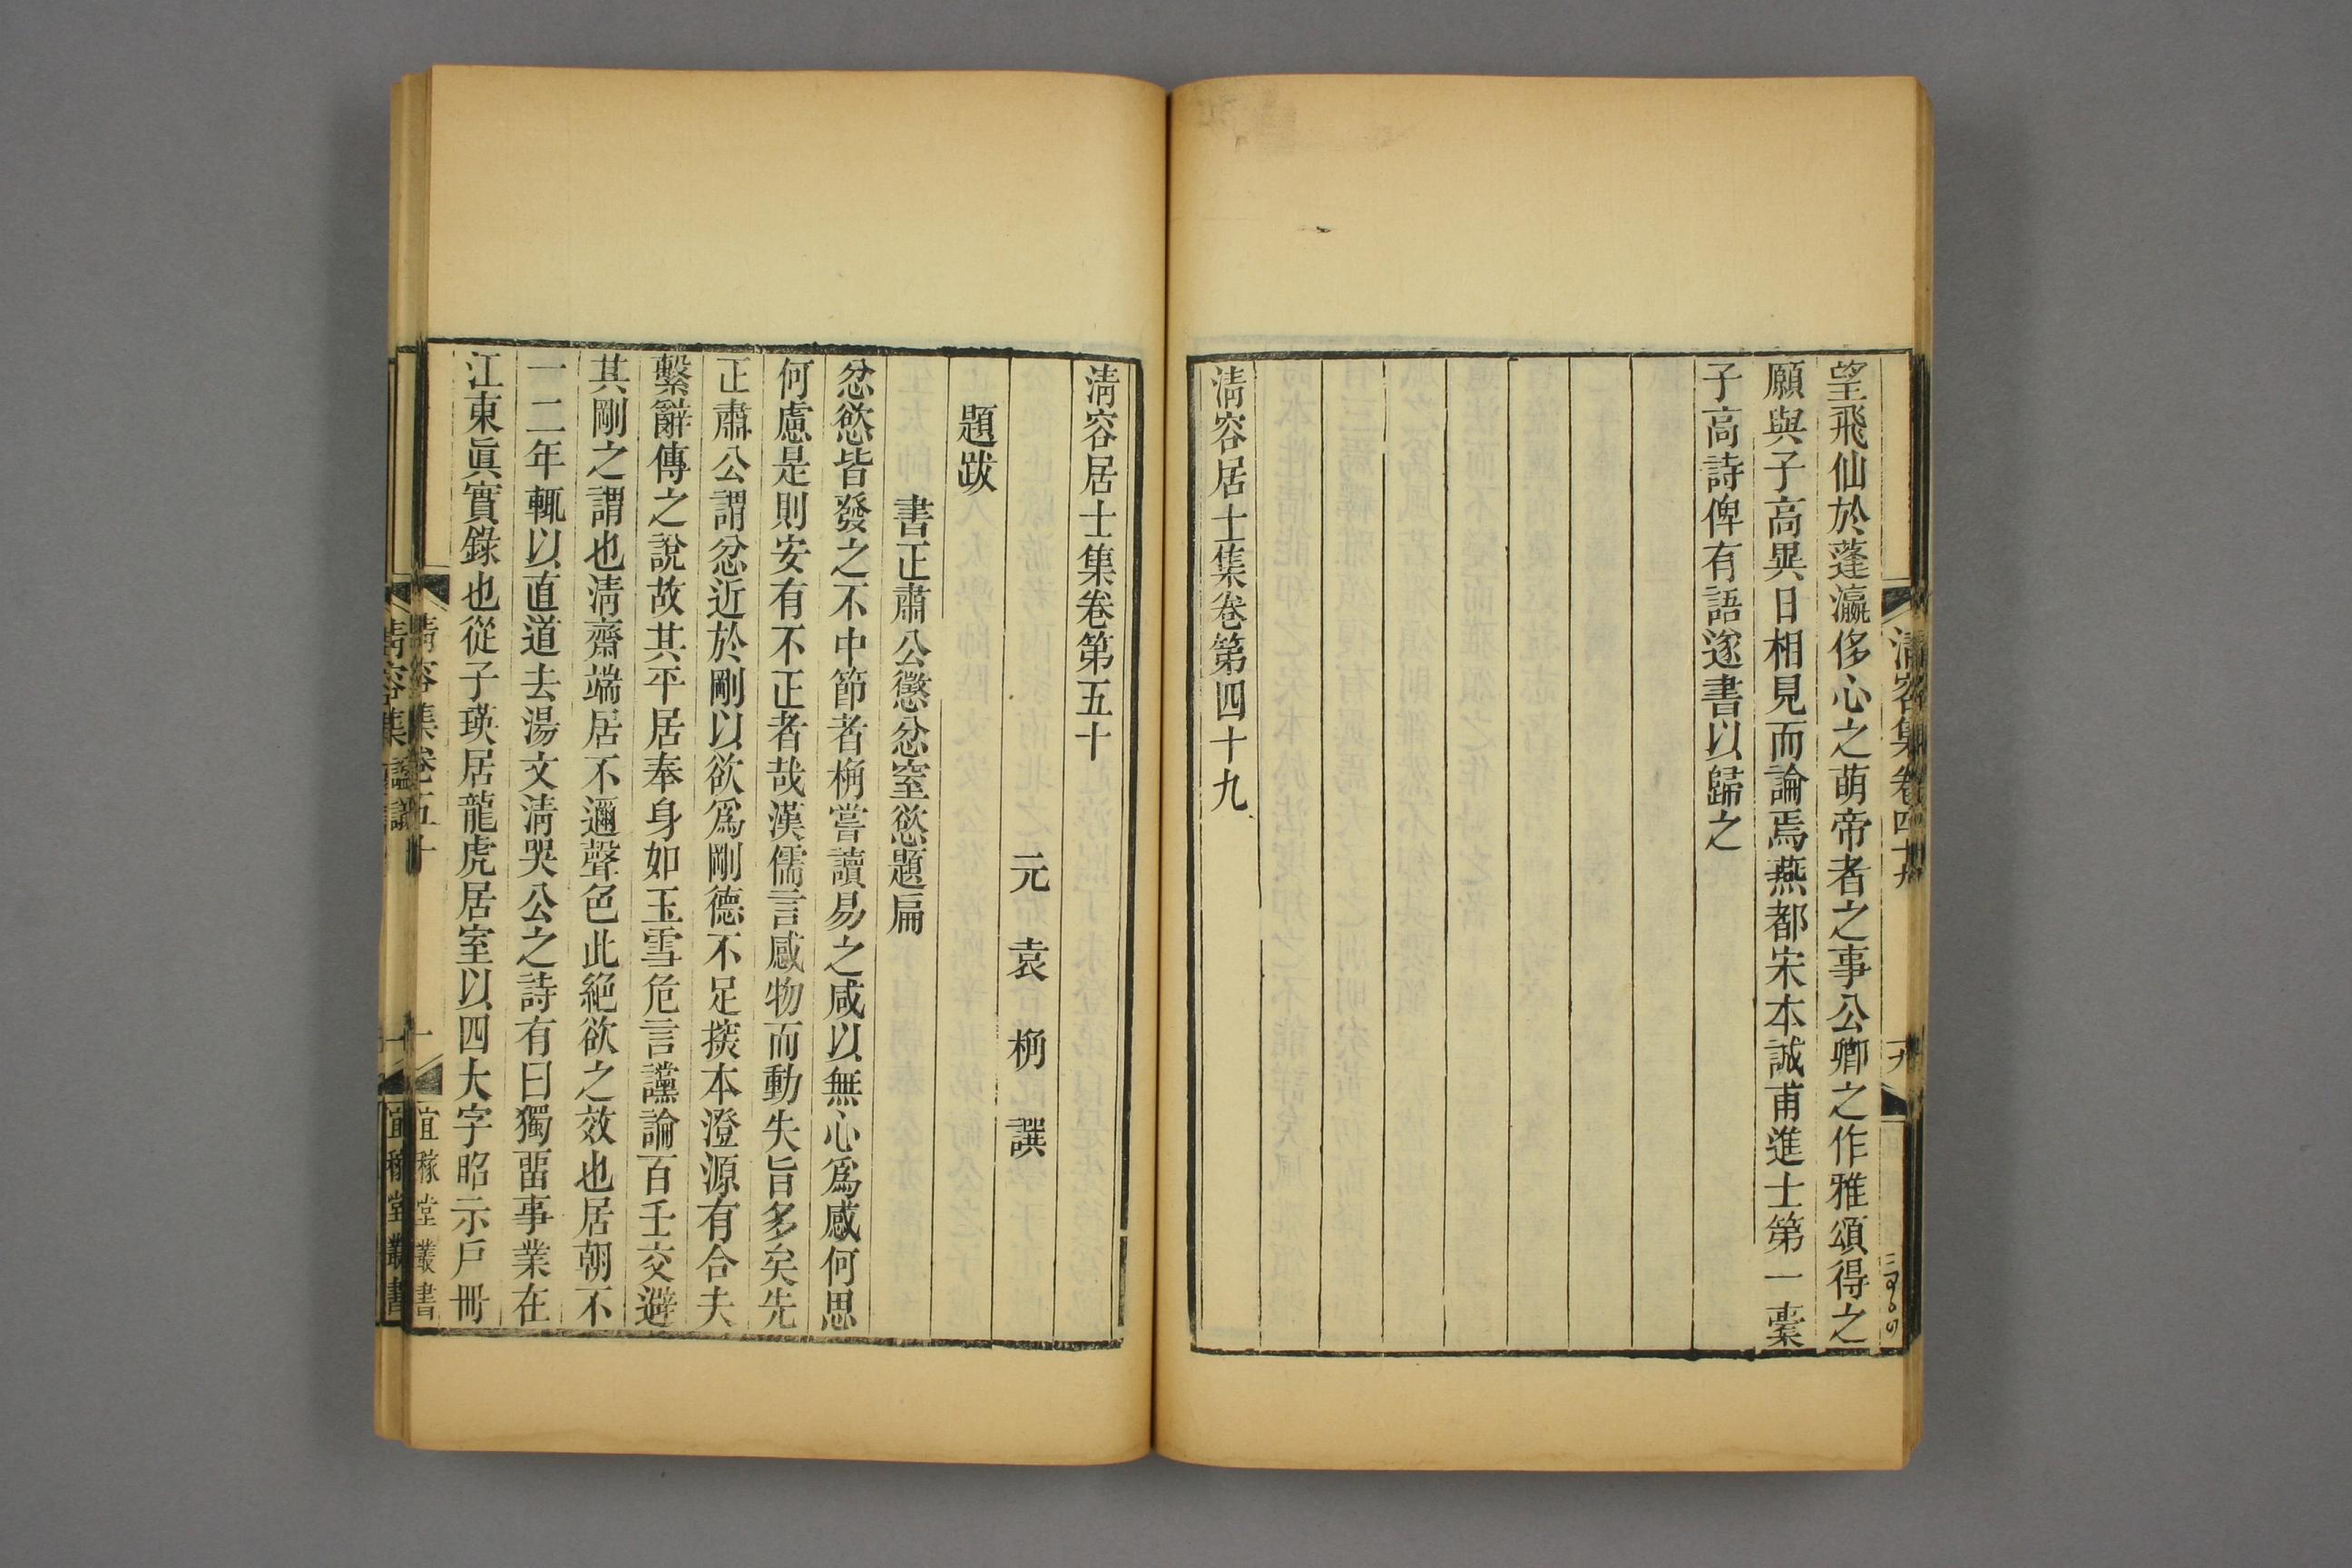 清容集卷四十九
望飛仙於蓬瀛侈心之萌帝者之事公卿之作雅頌得之
願與子高異日相見而論焉燕都宋本誠甫進士第一稾
子高詩俾有語遂書以歸之
清容居士集卷第四十九
清容居士集卷第五十
元 袁 桷 譔
題跋
書正肅公懲忿窒慾題扁
忿慾皆發之不中節者桷嘗讀易之咸以無心爲感何思
何慮是則安有不正者哉漢儒言感物而動失旨多矣先
正肅公謂忿近於剛以欲爲剛德不足揆本澄源有合夫
繫辭傳之說故其平居奉身如玉雪危言讜論百壬交避
其剛之謂也清齋端居不邇聲色此絕欲之效也居朝不
一二年輒以直道去湯文清哭公之詩有曰獨畱事業在
江東眞實錄也從子瑛居龍虎居室以四大字昭示戶冊
清容集卷五十
一
宜稼堂叢書
清容集
宜稼堂叢書